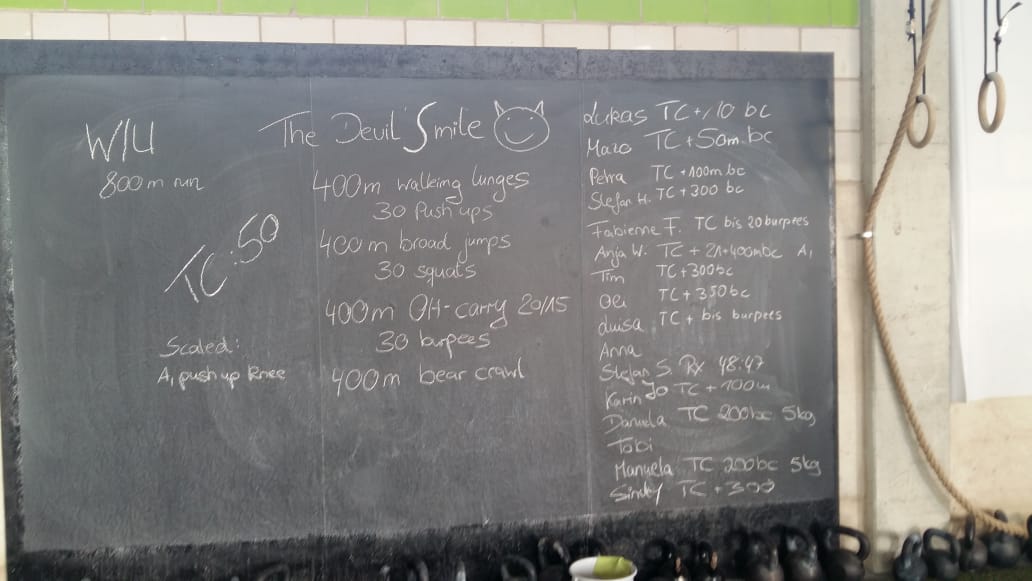 W/U
800m run
TC:50
Scaled:
A, push up knee
The Devil Smile
400m walking lunges
30 Push ups
400m broad jumps
30 squats
400m OH-carry 20/15
30 burpees
400m bear crawl
Lukas TC+110 bc
TC+50m bc
Petra TC+100m bc
Stefan H. TC+300 bc
Fabienne F. TC bis 20burpees
Anja W. TC + 21+400mbc A,
Tim TC+300bc
TC+350bc
Luisa TC + bis burpees
Anna
Stefan S. RX 48:47
Karin Jo TC+100m
Daniela TC 200bc 5kg
Tobi
Manuela TC 200bc 5kg
Sindy TC+300